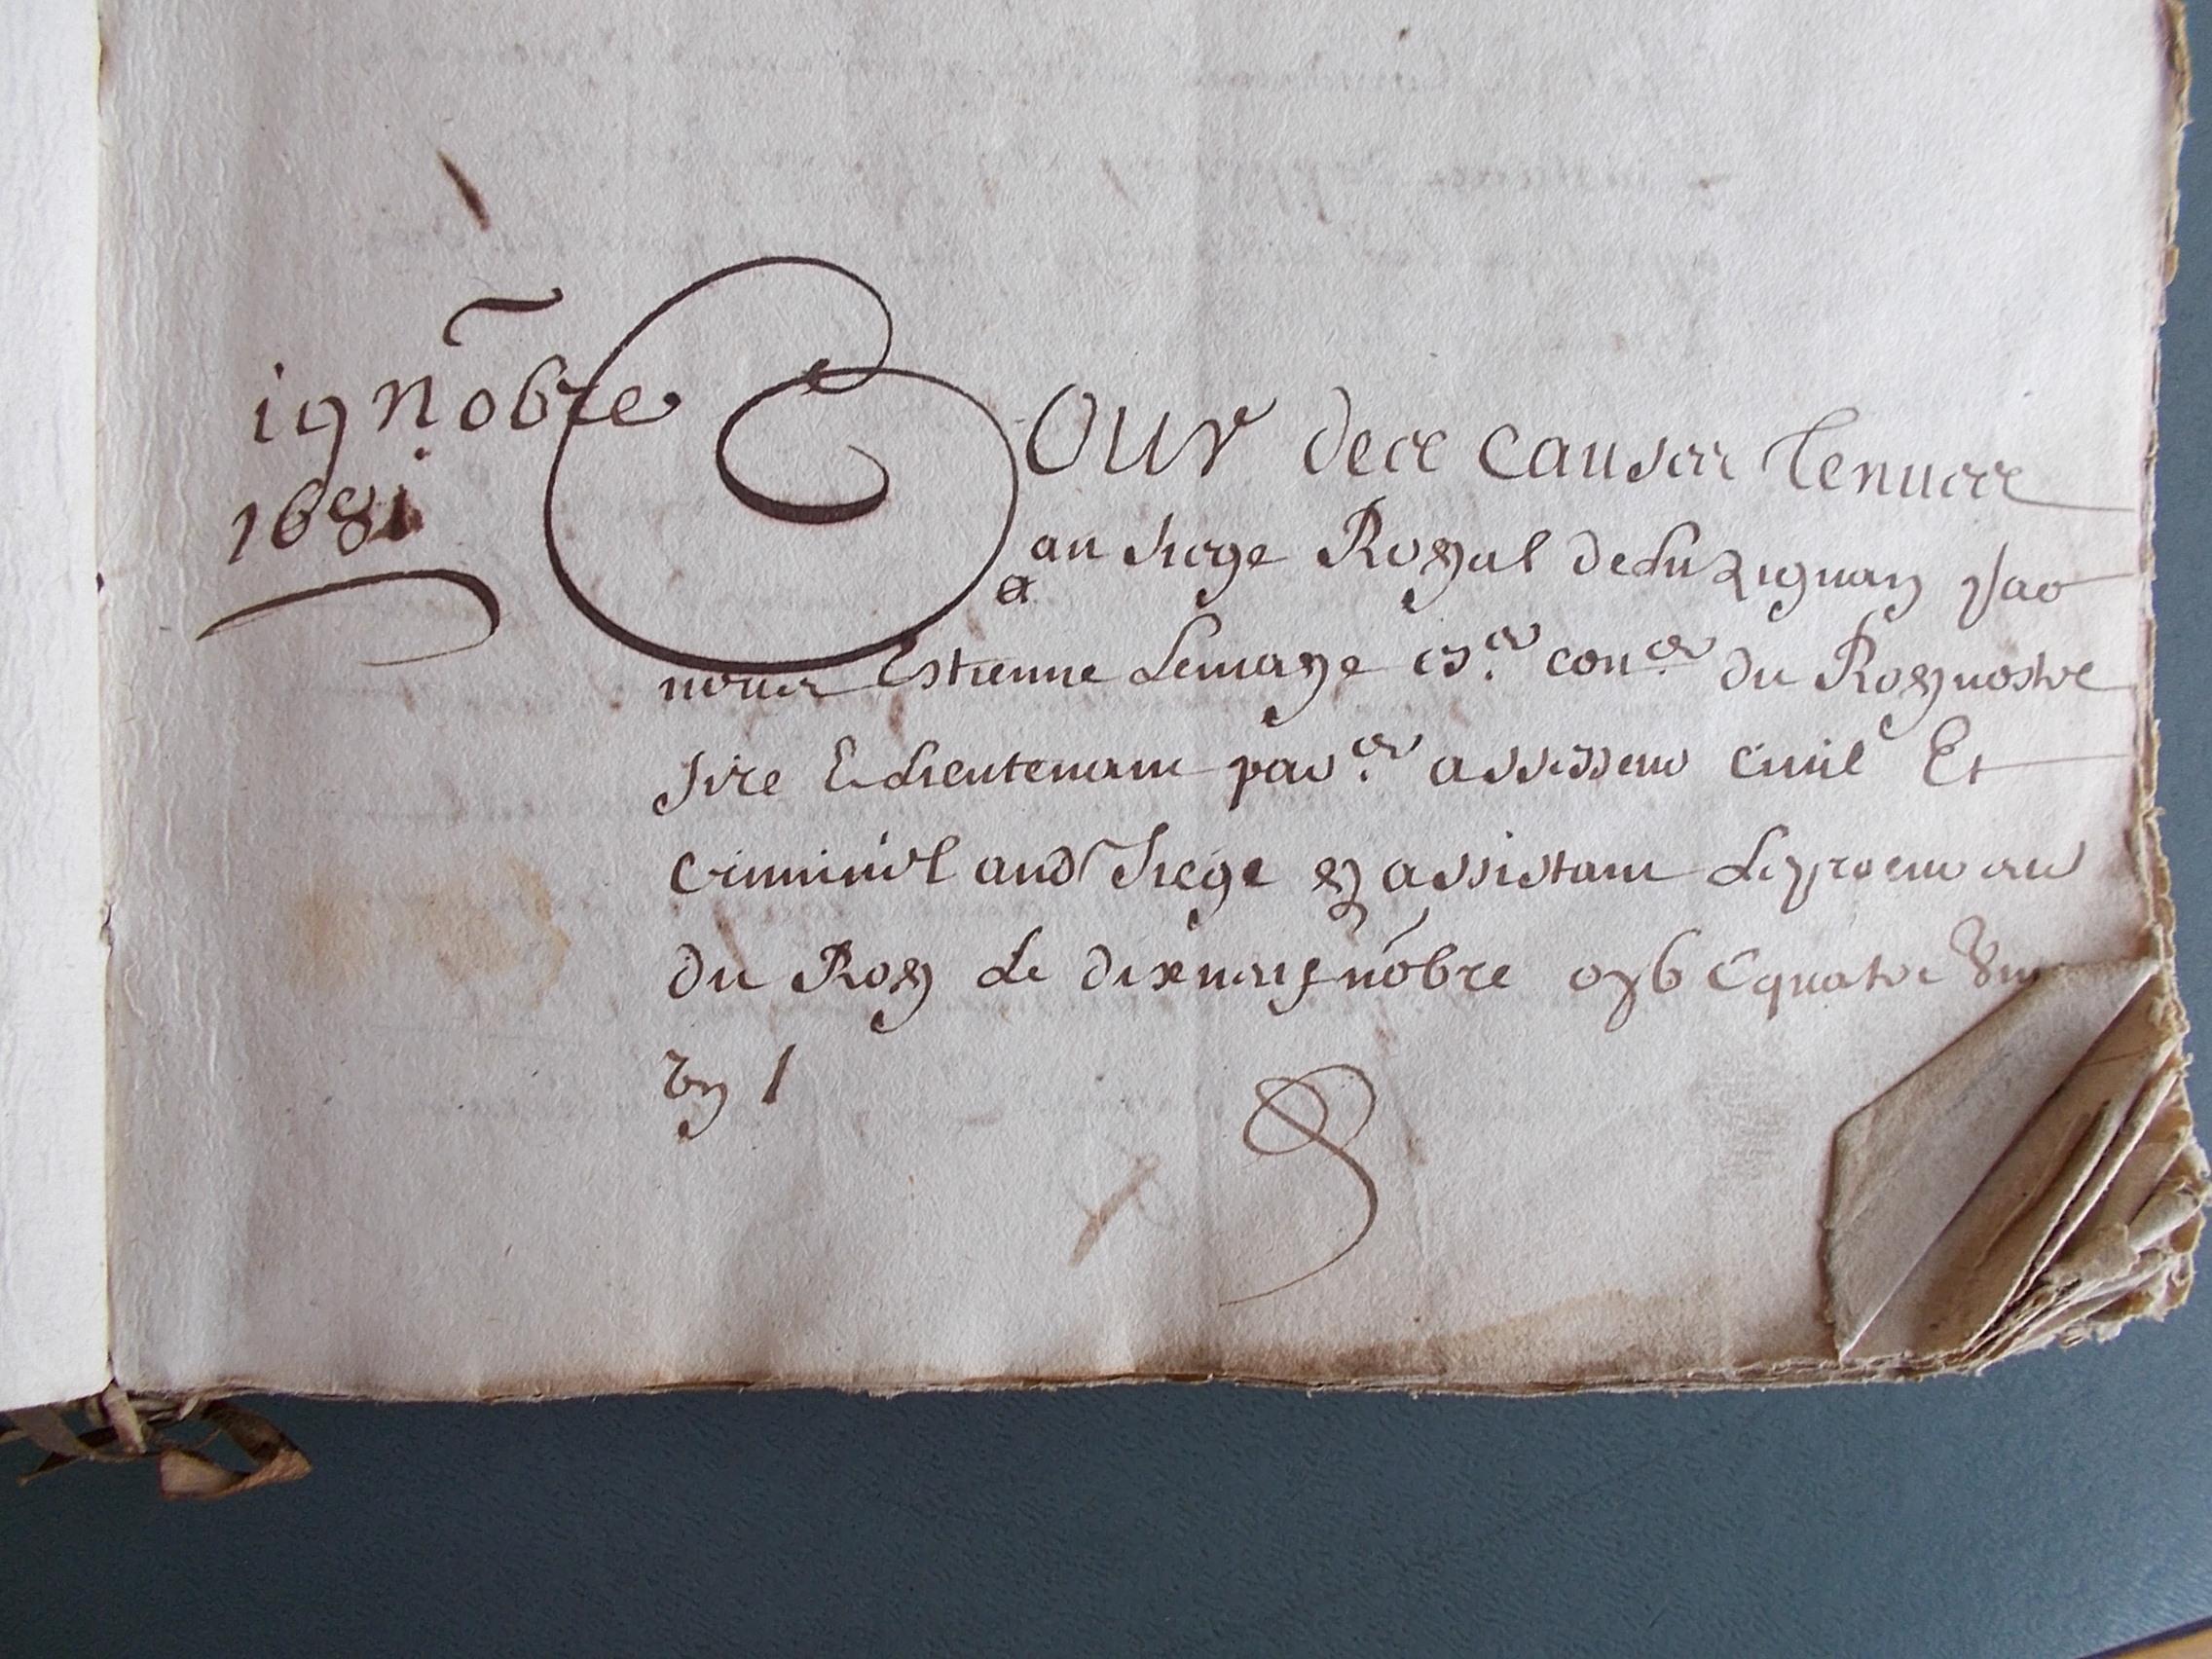 19 nobre
1681
Cour des causes tenues
au siege Royal de Luzignan par
nous Estienne Lemaye es.er con.er du Roy nostre
sire & Lieutenant par.er assesseur civil Et
criminel aud siege y assistant le procureur
du Roy Le dixneuf nobre 1676 quatre vin
un